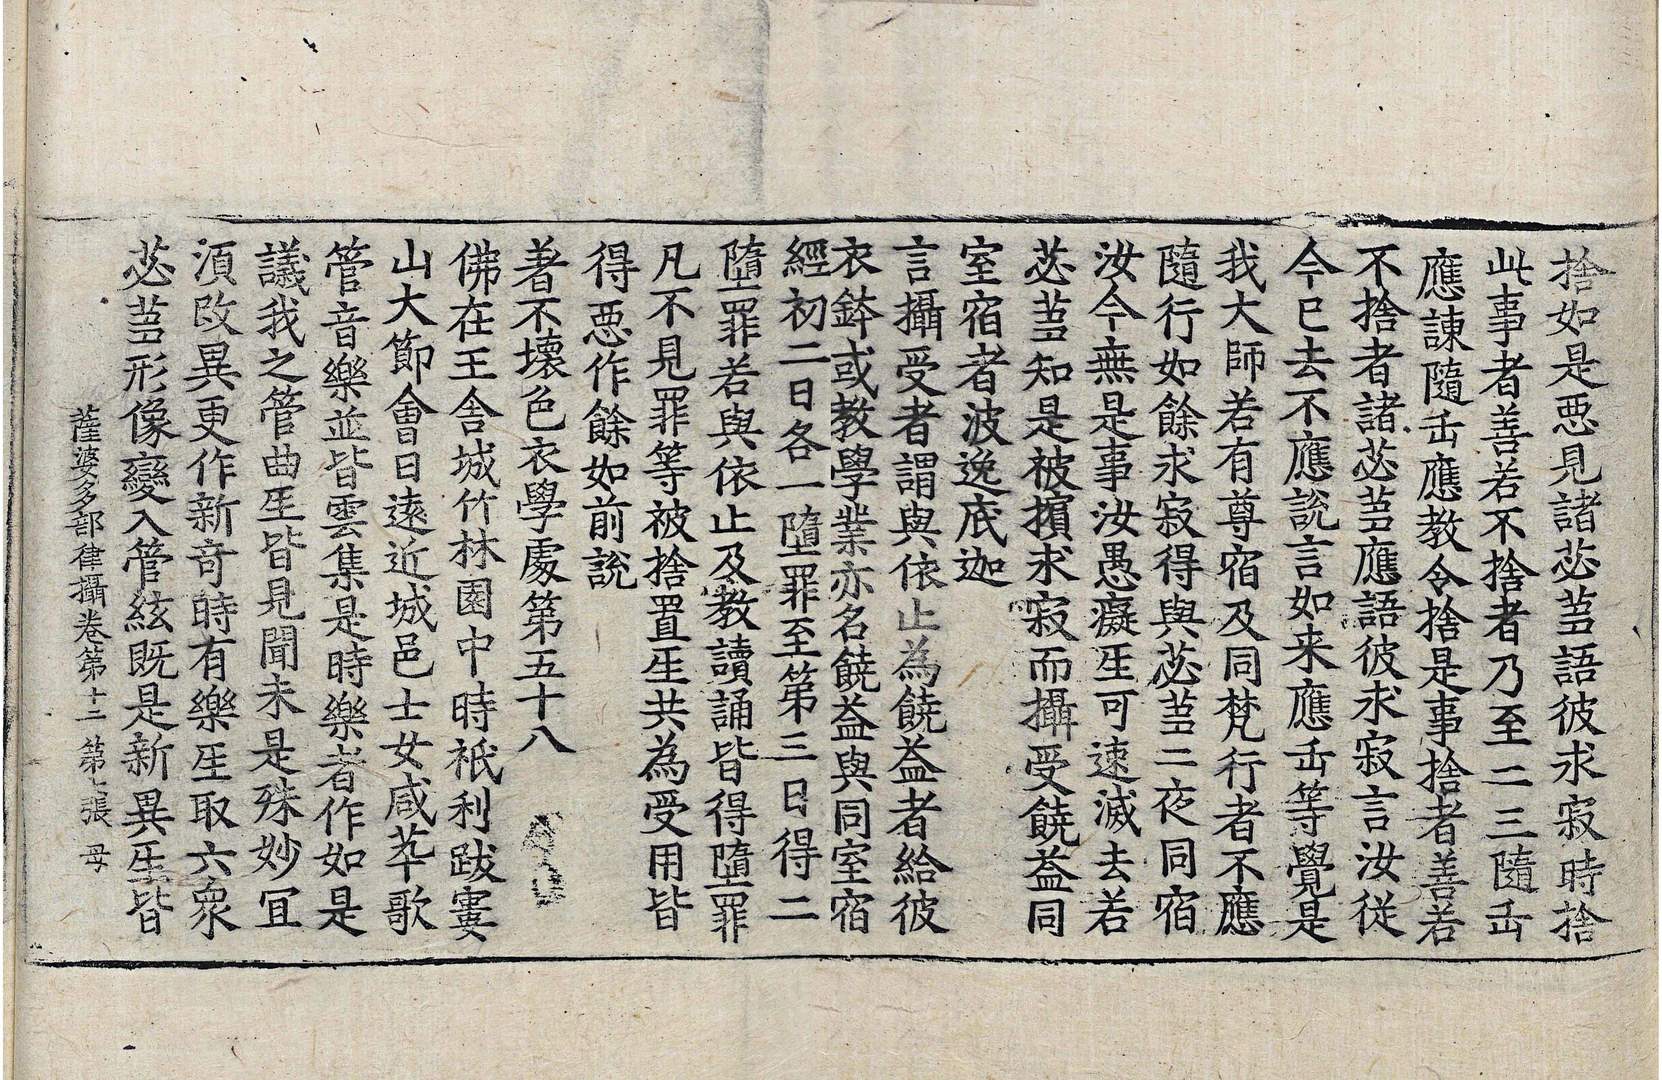 捨如是惡見諸苾芻語彼求寂時捨
此事者善若不捨者乃至二三隨正
應諫隨正應教令捨是事捨者善若
不捨者諸苾芻應語彼求寂言汝從
今已去不應說言如来應正等覺是
我大師若有尊宿及同梵行者不應
隨行如餘求寂得與苾芻二夜同宿
汝今無是事汝愚癡生可速滅去若
苾芻知是被擯求寂而攝受饒益同
室宿者波逸底迦
言攝受者謂與依止為饒益者給彼
衣鉢或教學業亦名饒益與同室宿
經初二日各一墮罪至第三日得二
墮罪若與依止及教讀誦皆得墮罪
凡不見罪等被捨置生共為受用皆
得惡作餘如前說
著不壞色衣學處第五十八
佛在王舍城竹林園中時祇利跋窶
山大節會日遠近城邑士女咸萃歌
管音樂並皆雲集是時樂者作如是
議我之管曲生皆見聞未是殊妙冝
湏改異更作新奇時有樂生取六衆
苾芻形像變入管絃既是新異生皆
薩婆多部律攝卷第十二 第七張 母